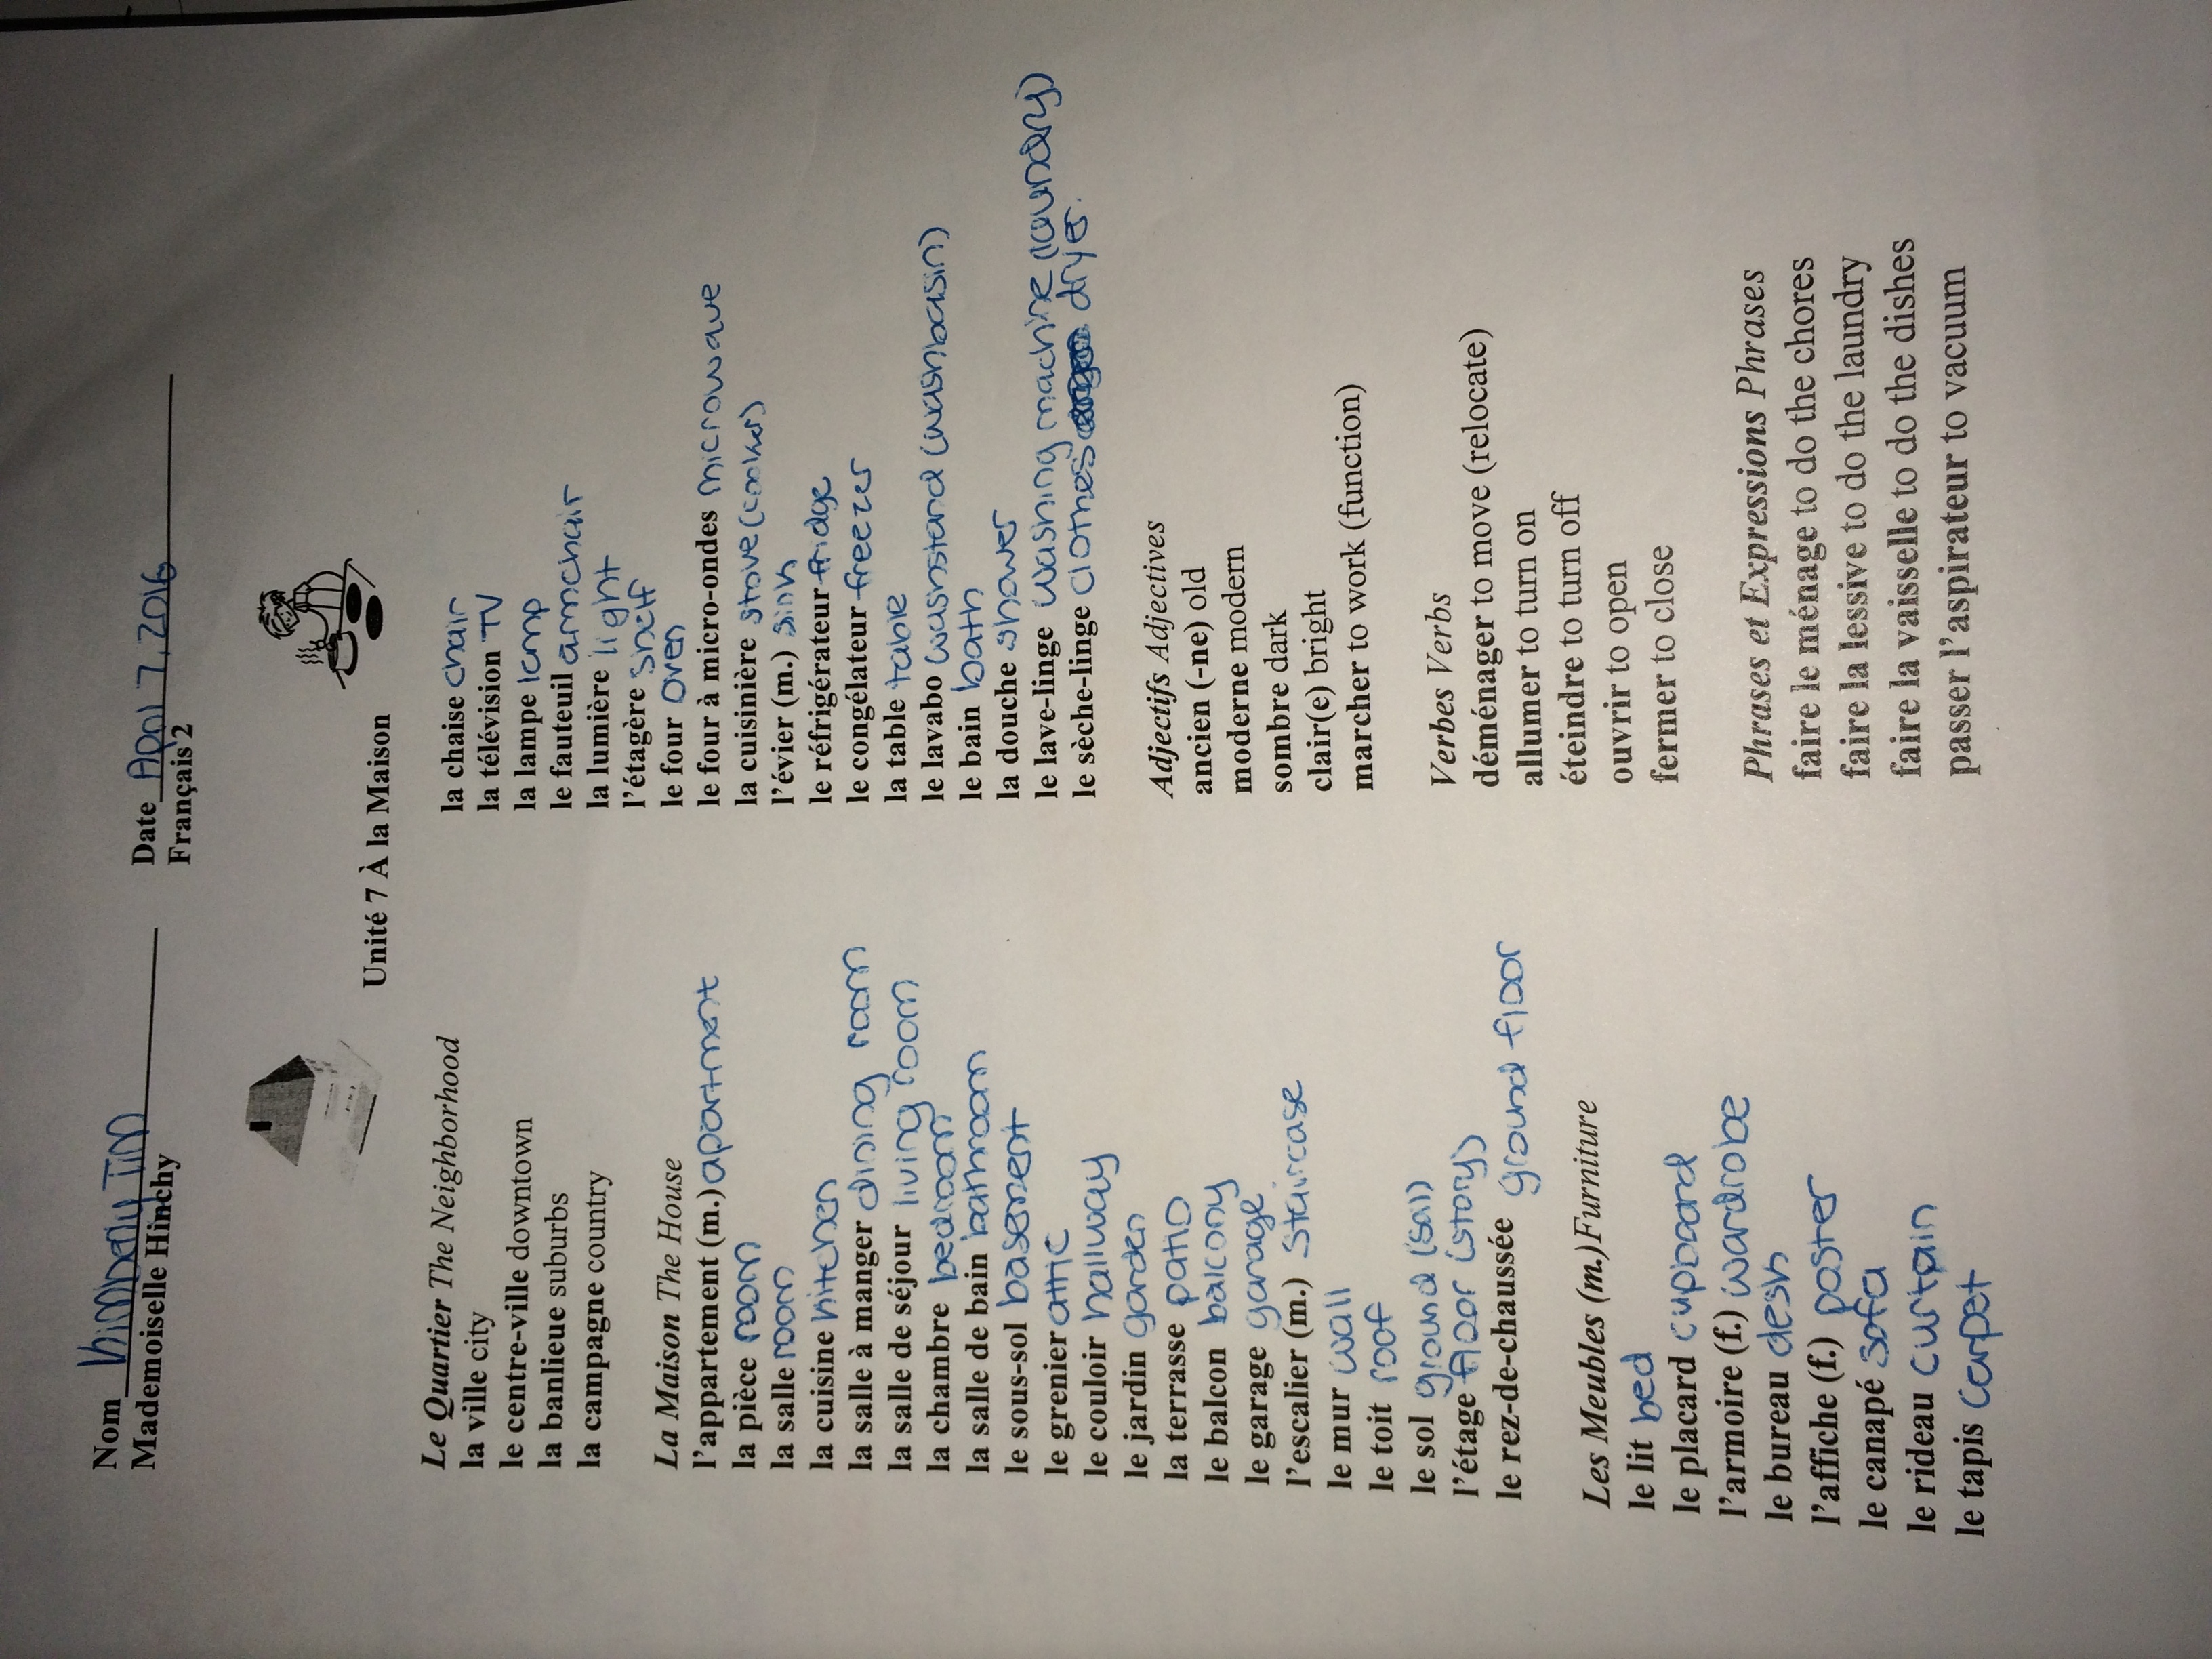 Nom Kimberly Tim
Mademoiselle Hinchy
Date April 7, 2016
Français 2
Unité 7 À la Maison
Le Quartier The Neighborhood
la ville city
le centre-ville downtown
la banlieue suburbs
la campagne country
La Maison The House
l'appartement (m.) apartment
la pièce room
la salle room
la cuisine kitchen
la salle à manger dining room
la salle de séjour living room
la chambre bedroom
la salle de bain bathroom
le sous-sol basement
le grenier attic
le couloir hallway
le jardin garden
la terrasse patio
le balcon balcony
le garage garage
l'escalier (m.) staircase
le mur wall
le toit roof
le sol ground (soil)
l'étage floor (story)
le rez-de-chaussée ground floor
Les Meubles (m.) Furniture
le lit bed
le placard cupboard
l'armoire (f.) wardrobe
le bureau desk
l'affiche (f.) poster
le canapé sofa
le rideau curtain
le tapis carpet
la chaise chair
la télévision TV
la lampe lamp
le fauteuil armchair
la lumière light
l'étagère shelf
le four oven
le four à micro-ondes microwave
la cuisinière stove (cooker)
l'évier (m.) sink
le réfrigérateur fridge
le congélateur freezer
la table table
le lavabo washstand (washbasin)
le bain bath
la douche shower
le lave-linge washing machine (laundry)
le sèche-linge clothes dryer.
Adjectifs Adjectives
ancien (-ne) old
moderne modern
sombre dark
clair(e) bright
marcher to work (function)
Verbes Verbs
déménager to move (relocate)
allumer to turn on
éteindre to turn off
ouvrir to open
fermer to close
Phrases et Expressions Phrases
faire le ménage to do the chores
faire la lessive to do the laundry
faire la vaisselle to do the dishes
passer l'aspirateur to vacuum